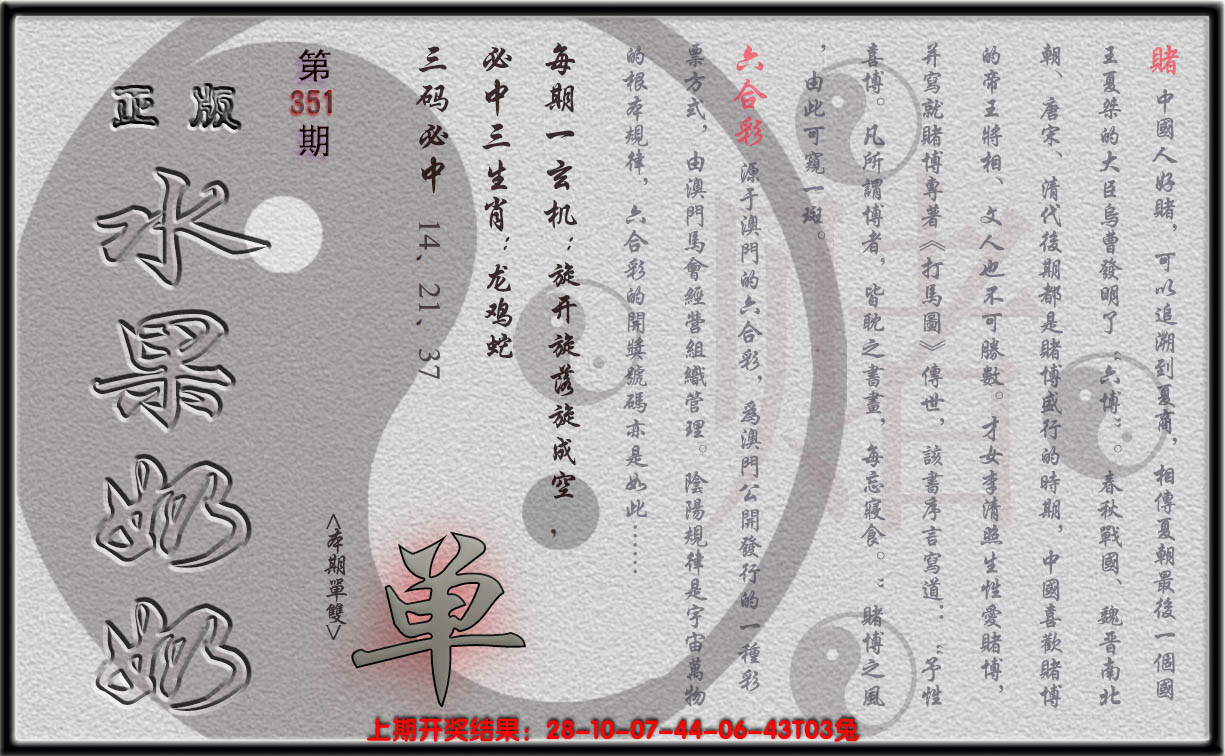 賭 中國人好賭，可以追溯到夏商，相傳夏朝最後一個國
王夏桀的大臣烏曹發明了“六博”。春秋戰國、魏晋南北
朝、唐宋、清代後期都是賭博盛行的時期，中國喜歡賭博
的帝王將相、文人也不可勝數。才女李清照生性愛賭博，
并寫就賭博專著《打馬圖》傳世，該書序言寫道：“予性
喜博。凡所謂博者，皆耽之書畫，每忘寢食。”賭博之風
，由此可窺一斑。
六合彩 源于澳門的六合彩，爲澳門公開發行的一種彩
票方式，由澳門馬會經營組織管理。陰陽規律是宇宙萬物
的根本規律，六合彩的開獎號碼亦是如此……
每期一玄机：旋开旋落旋成空，
必中三生肖：龙鸡蛇
三码必中 14、21、37
第351期
正版
水果奶奶
<本期單雙>
单
上期开奖结果：28-10-07-44-06-43T03兔